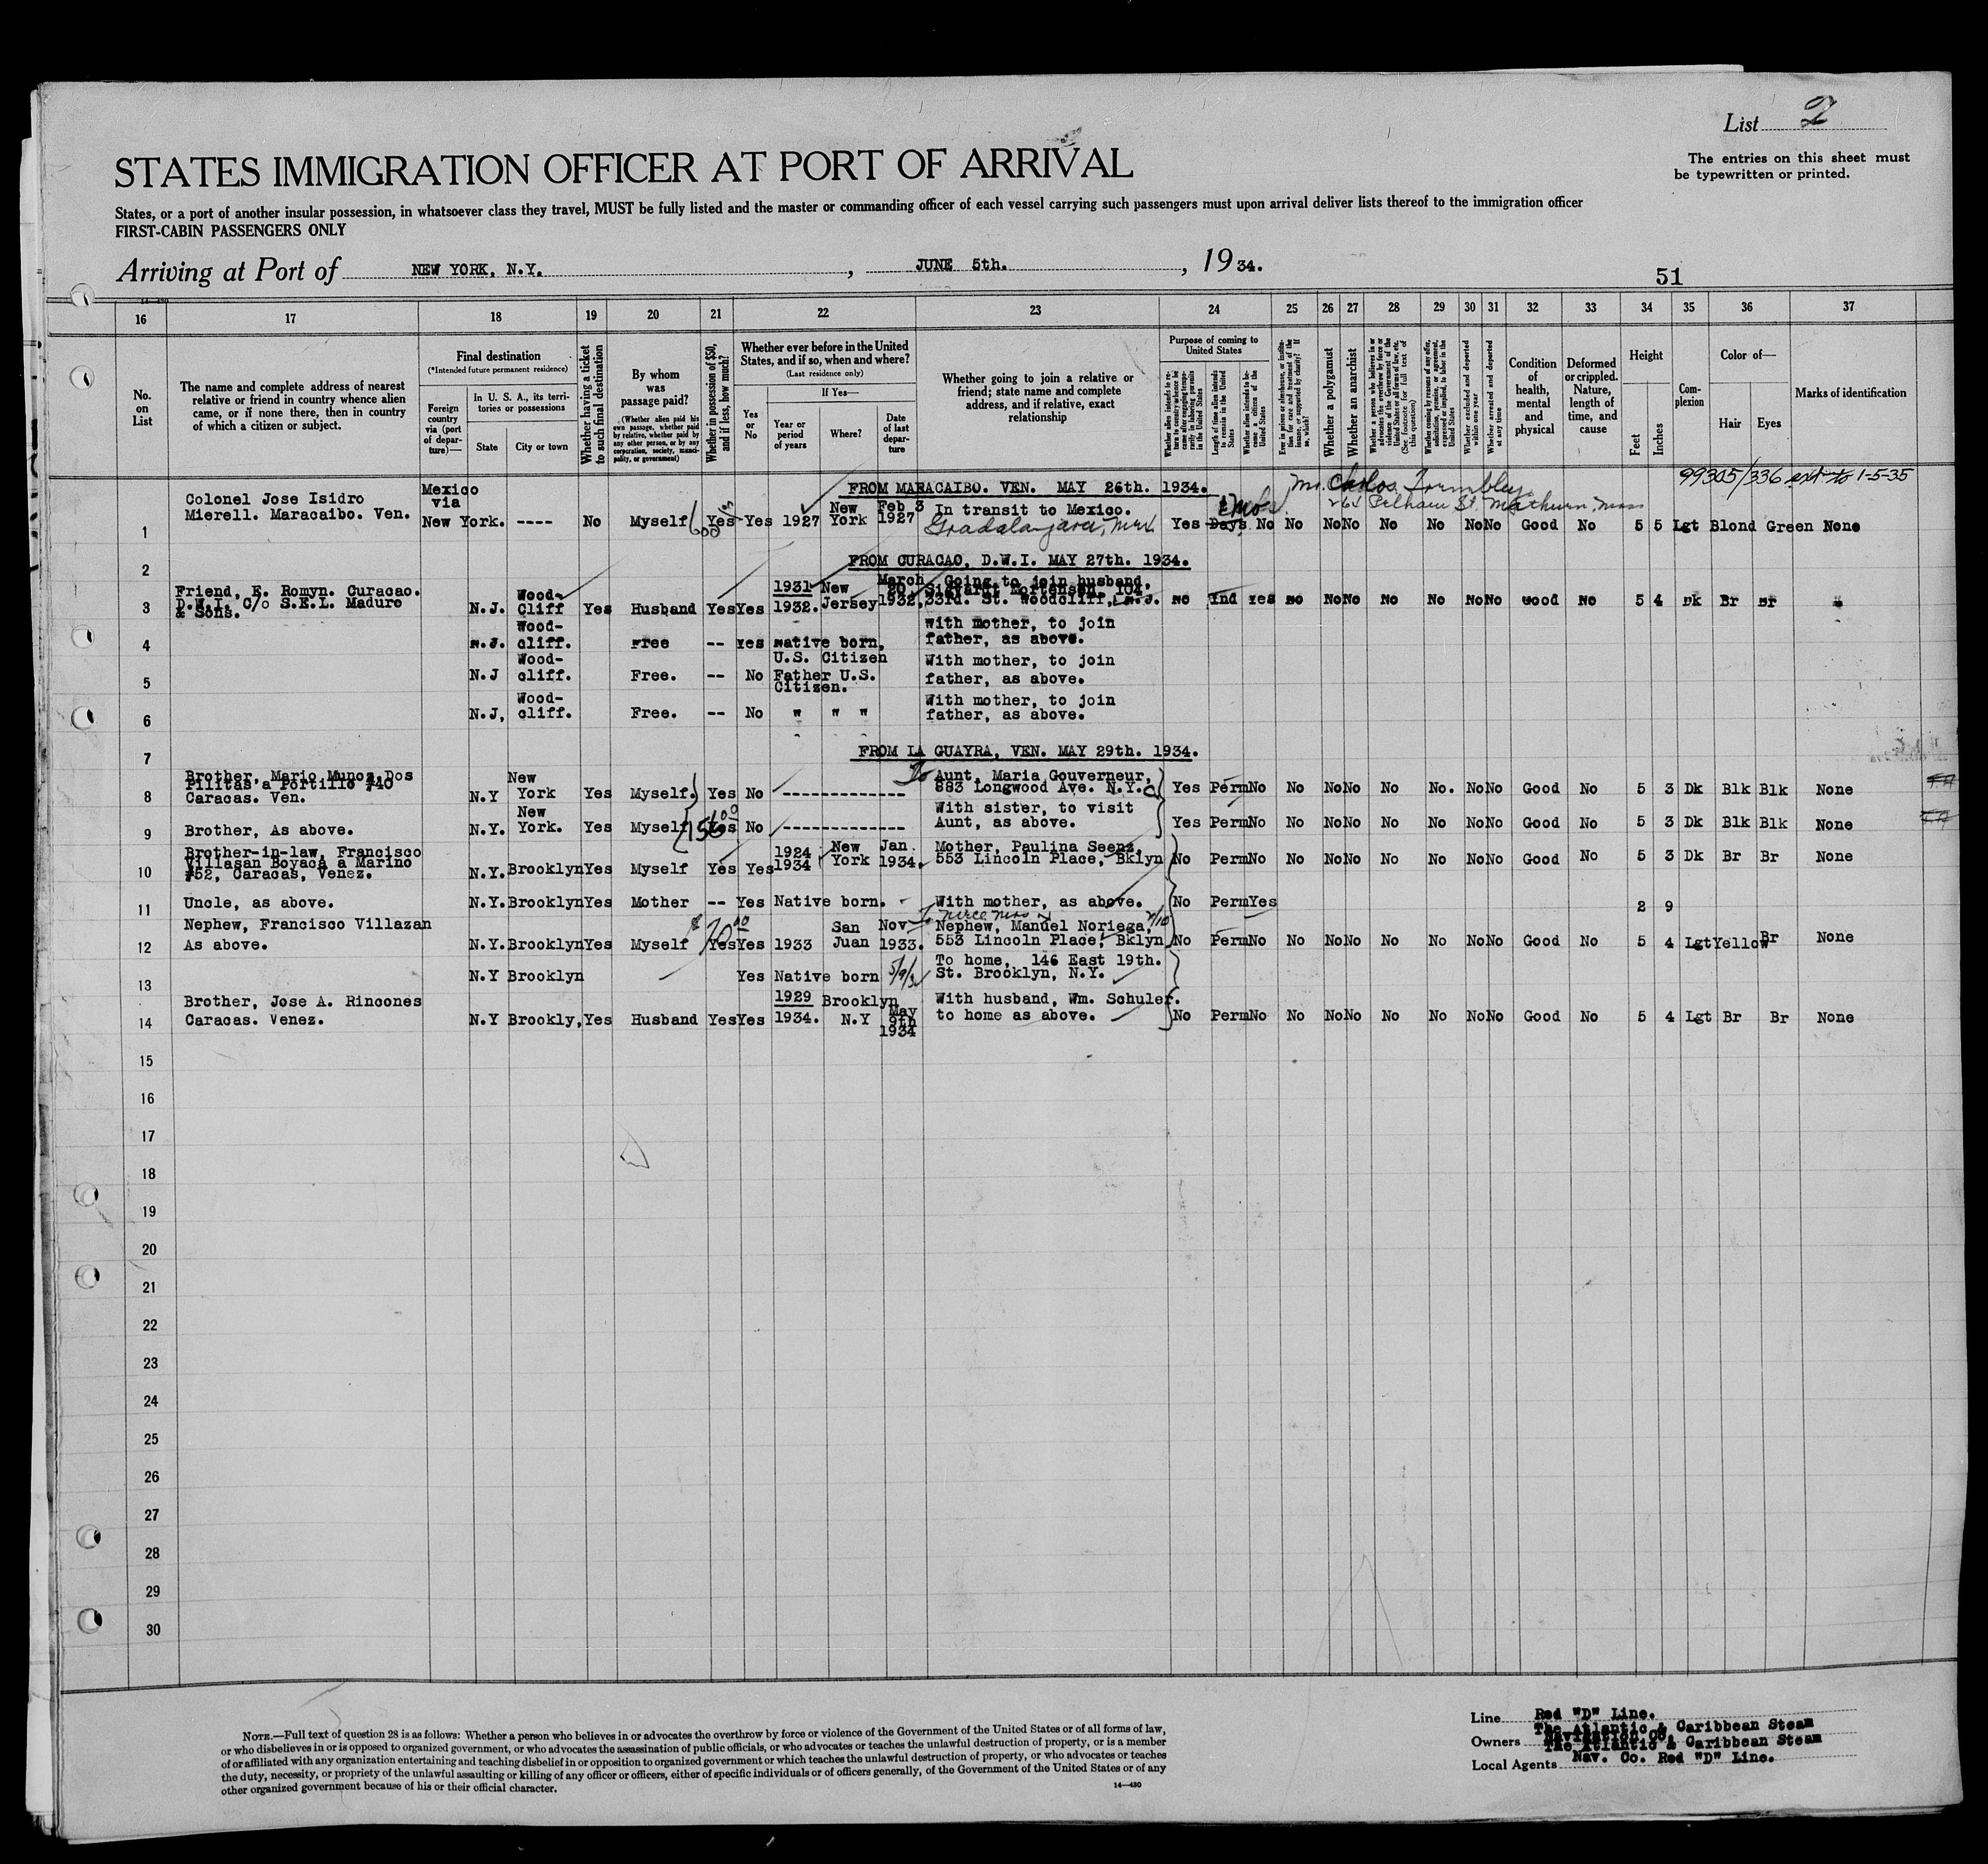 List 2
The entries on this sheet must
be typewritten or printed.
STATES IMMIGRATION OFFICER AT PORT OF ARRIVAL
States, or a port of another insular possession, in whatsoever class they travel, MUST be fully listed and the master or commanding officer of each vessel carrying such passengers must upon arrival deliver lists thereof to the immigration officer
FIRST-CABIN PASSENGERS ONLY
Arriving at Port of NEW YORK, N.Y. , JUNE 5th. , 19 34.
51
14-430
16 17 18 19 20 21 22 23 24 25 26 27 28 29 30 31 32 33 34 35 36 37
No. on List
The name and complete address of nearest relative or friend in country whence alien came, or if none there, then in country of which a citizen or subject.
Final destination
(*Intended future permanent residence)
Foreign country via (port of departure)—
In U. S. A., its territories or possessions
State
City or town
Whether having a ticket to such final destination
By whom was passage paid?
(Whether alien paid his own passage, whether paid by relative, whether paid by any other person, or by any corporation, society, municipality, or government)
Whether in possession of $50, and if less, how much?
Whether ever before in the United States, and if so, when and where?
(Last residence only)
Yes or No
If Yes—
Year or period of years
Where?
Date of last departure
Whether going to join a relative or friend; state name and complete address, and if relative, exact relationship
Purpose of coming to United States
Whether alien intends to return to country whence he came after engaging temporarily in laboring pursuits in the United States
Length of time alien intends to remain in the United States
Whether alien intends to become a citizen of the United States
Ever in prison or almshouse, or institution for care and treatment of the insane, or supported by charity? If so, which?
Whether a polygamist
Whether an anarchist
Whether a person who believes in or advocates the overthrow by force or violence of the Government of the United States or all forms of law, etc. (See footnote for full text of this question)
Whether coming by reason of any offer, solicitation, promise, or agreement, expressed or implied, to labor in the United States
Whether excluded and deported within one year
Whether arrested and deported at any time
Condition of health, mental and physical
Deformed or crippled. Nature, length of time, and cause
Height
Feet
Inches
Complexion
Color of—
Hair
Eyes
Marks of identification
99305/336 ext to 1-5-35
FROM MARACAIBO. VEN. MAY 26th. 1934.
Pelham St. Methuen, Mass
1 Colonel Jose Isidro Mierell. Maracaibo. Ven. Mexico via New York. ---- No Myself 600 Yes Yes 1927 New York Feb 3 1927 In transit to Mexico. Guadalajara, Mex. Yes Days mos. No No No No No No No No Good No 5 5 Lgt Blond Green None
2 FROM CURACAO, D.W.I. MAY 27th. 1934.
3 Friend, E. Romyn. Curacao. D.W.I. C/o S.E.L. Maduro & Sons. N.J. Wood-Cliff Yes Husband Yes Yes 1931 1932. New Jersey March 20, 1932, Going to join husband, Sigvardt Mortensen, 104, 33rd. St. Woodcliff, N.J. No Ind Yes No No No No No No No Good No 5 4 Dk Br Br "
4 N.J. Wood-cliff. Free -- Yes Native born, U.S. Citizen With mother, to join father, as above.
5 N.J Wood-cliff. Free. -- No Father U.S. Citizen. With mother, to join father, as above.
6 N.J, Wood-cliff. Free. -- No " " " With mother, to join father, as above.
7 FROM LA GUAYRA, VEN. MAY 29th. 1934.
8 Brother, Mario Munoz Dos Pilitas a Portillo #40 Caracas. Ven. N.Y New York Yes Myself. Yes No ------------- To Aunt, Maria Gouverneur, 883 Longwood Ave. N.Y.C Yes Perm No No No No No No. No No Good No 5 3 Dk Blk Blk None
9 Brother, As above. N.Y. New York. Yes Myself 156 00 Yes No ------------- With sister, to visit Aunt, as above. Yes Perm No No No No No No No No Good No 5 3 Dk Blk Blk None
10 Brother-in-law, Francisco Villasan Boyaca a Marino #52, Caracas, Venez. N.Y. Brooklyn Yes Myself Yes Yes 1924 1934 New York Jan. 1934. Mother, Paulina Seenz, 553 Lincoln Place, Bklyn No Perm No No No No No No No No Good No 5 3 Dk Br Br None
11 Uncle, as above. N.Y. Brooklyn Yes Mother -- Yes Native born. With mother, as above. No Perm Yes 2 9
12 Nephew, Francisco Villazan As above. N.Y. Brooklyn Yes Myself $70 00 Yes Yes 1933 San Juan Nov 1933. Nephew, Manuel Noriega, 553 Lincoln Place, Bklyn No Perm No No No No No No No No Good No 5 4 Lgt Yellow Br None
13 N.Y Brooklyn Yes Native born To home, 146 East 19th. St. Brooklyn, N.Y.
14 Brother, Jose A. Rincones Caracas. Venez. N.Y Brookly, Yes Husband Yes Yes 1929 1934. Brooklyn N.Y May 9th 1934 With husband, Wm. Schuler. to home as above. No Perm No No No No No No No No Good No 5 4 Lgt Br Br None
15
16
17
18
19
20
21
22
23
24
25
26
27
28
29
30
NOTE.—Full text of question 28 is as follows: Whether a person who believes in or advocates the overthrow by force or violence of the Government of the United States or of all forms of law,
or who disbelieves in or is opposed to organized government, or who advocates the assassination of public officials, or who advocates or teaches the unlawful destruction of property, or is a member
of or affiliated with any organization entertaining and teaching disbelief in or opposition to organized government or which teaches the unlawful destruction of property, or who advocates or teaches
the duty, necessity, or propriety of the unlawful assaulting or killing of any officer or officers, either of specific individuals or of officers generally, of the Government of the United States or of any
other organized government because of his or their official character.
14—430
Line Red "D" Line.
Owners The Atlantic & Caribbean Steam Navigation Co.
Local Agents The Atlantic & Caribbean Steam Nav. Co. Red "D" Line.